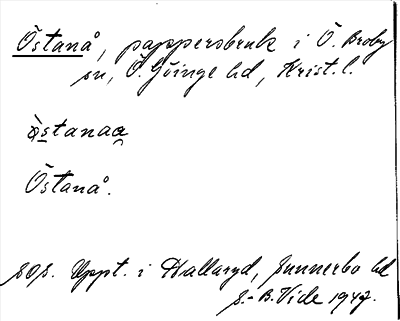 Östanå, pappersbruk i Ö. Broby
sn, Ö. Göinge hd, Krist. l.
östanaa
Östanå.
sos. Uppt. i Hallaryd, Sunnerbo hd
S.-B. Vide 1947.